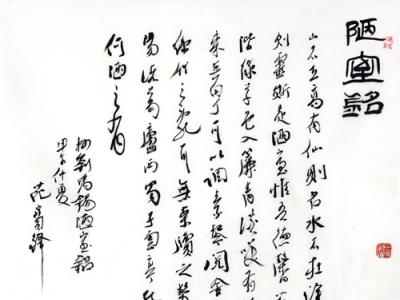 陋室銘
山不在高有仙則名水不在深
則靈斯是陋室惟吾德馨苔
階綠草色入簾青談笑有
來無白丁可以調素琴閱金
絲竹之亂耳無案牘之勞
陽諸葛廬西蜀子雲亭孔
何陋之有
抄劉禹錫陋室銘
甲午仲夏